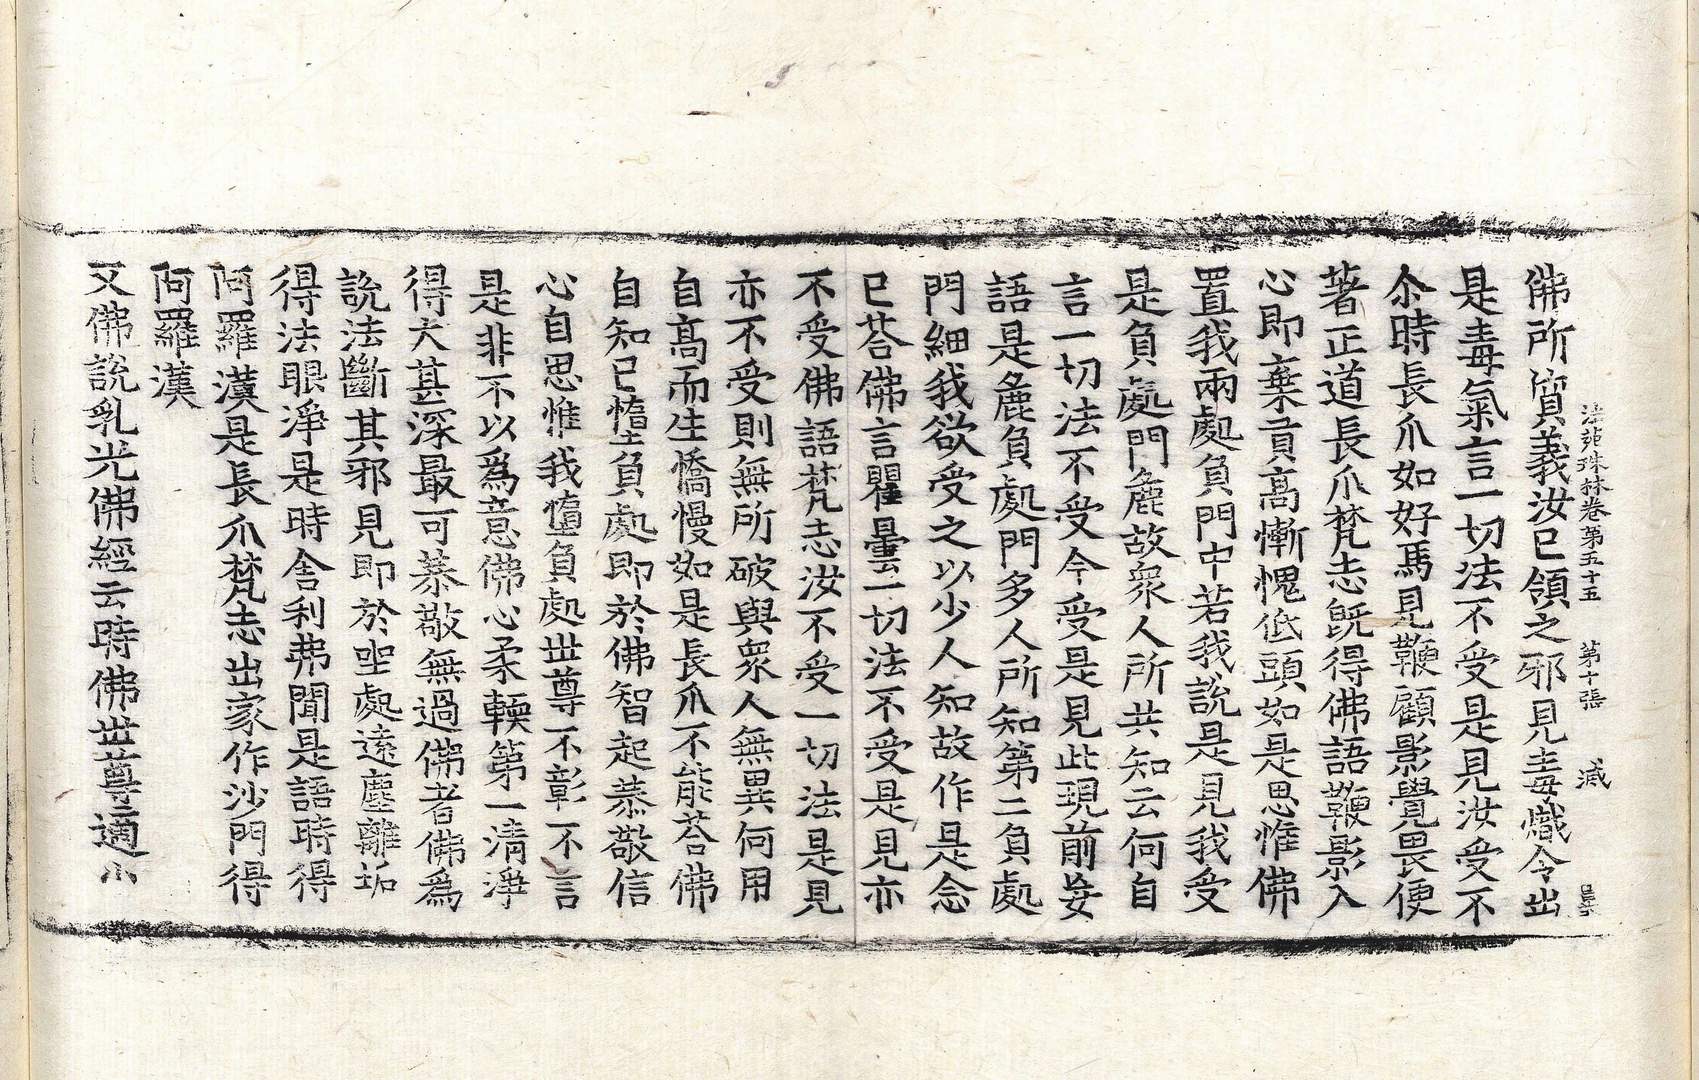 法苑珠林卷第五十五 第十張 㓕
佛所質義汝已領之邪見毒熾令出
是毒氣言一切法不受是見汝受不
尒時長爪如好馬見鞭顧影覺畏便
著正道長爪梵志旣得佛語鞭影入
心即棄貢髙慚愧低頭如是思惟佛
置我兩處負門中若我說是見我受
是負處門麁故衆人所共知云何自
言一切法不受今受是見此現前妄
語是麁負處門多人所知第二負處
門細我欲受之以少人知故作是念
已荅佛言瞿曇一切法不受是見亦
不受佛語梵志汝不受一切法是見
亦不受則無所破與衆人無異何用
自髙而生憍慢如是長爪不能荅佛
自知已墮負處即於佛智起恭敬信
心自思惟我墮負處世尊不彰不言
是非不以爲意佛心柔輭第一清淨
得大甚深最可恭敬無過佛者佛爲
說法斷其邪見即於坐處遠塵離垢
得法眼淨是時舍利弗聞是語時得
阿羅漢是長爪梵志出家作沙門得
阿羅漢
又佛說乳光佛經云時佛世尊適小